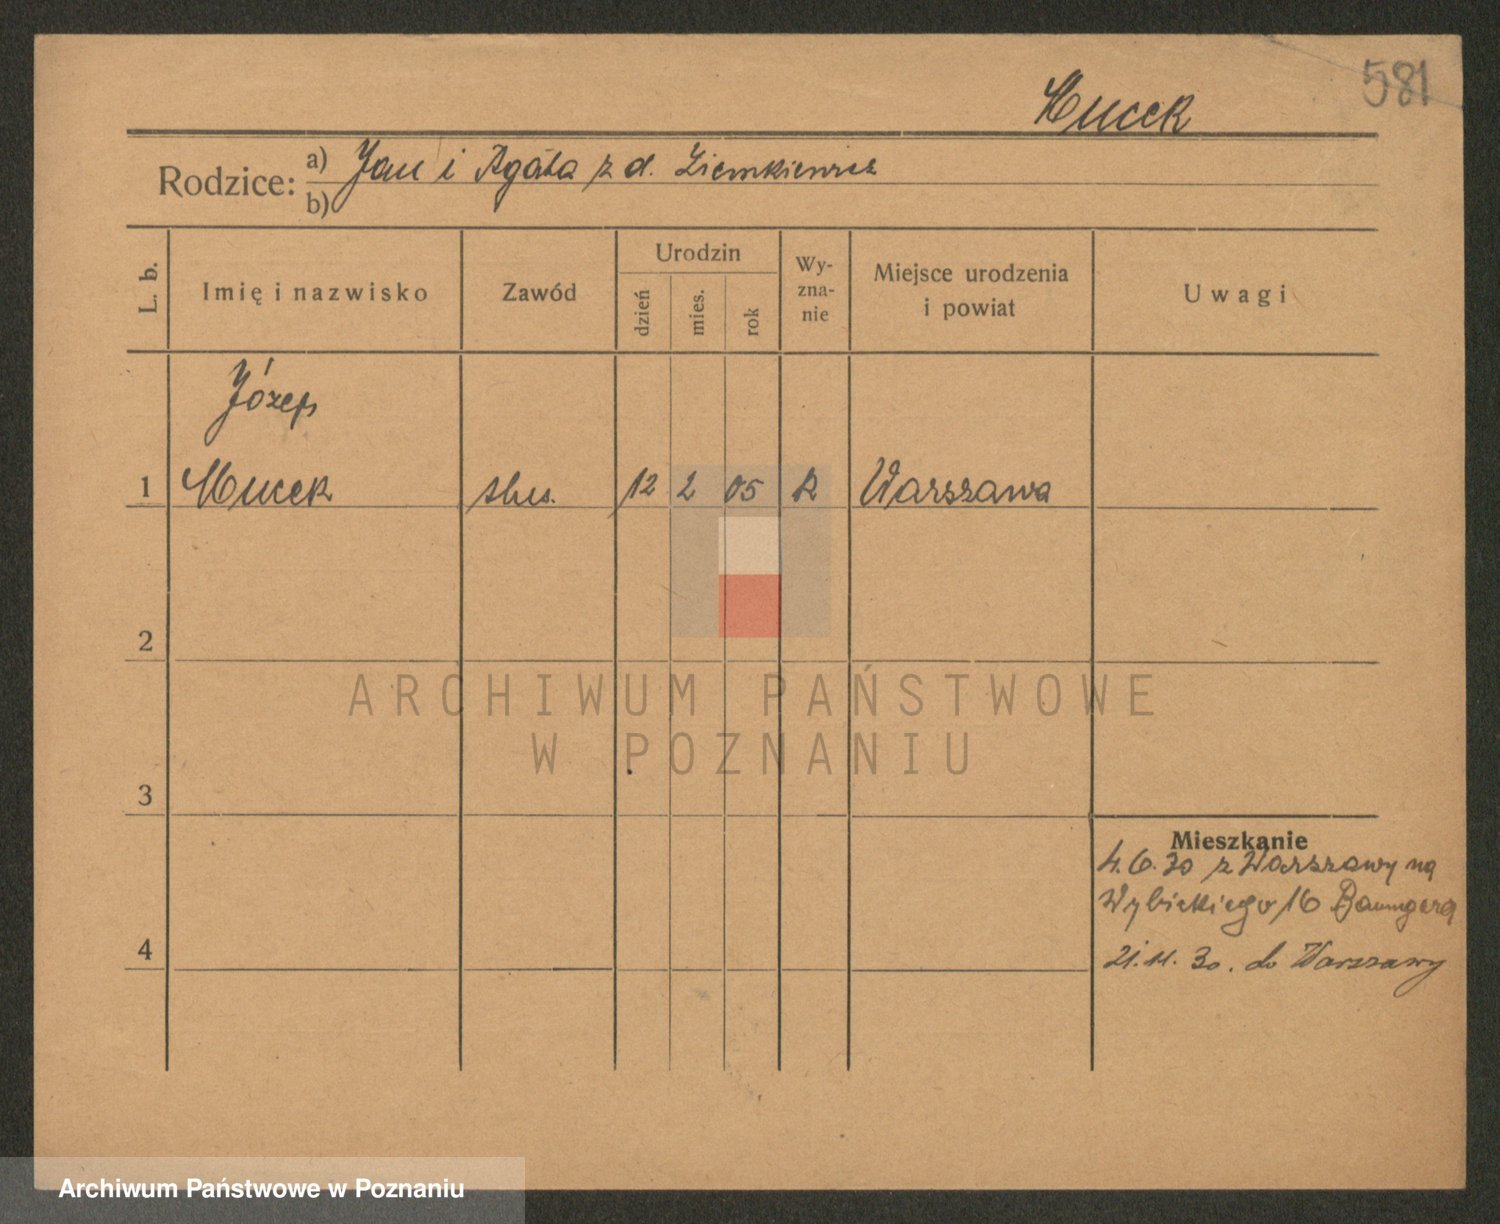 581
Mucek
Rodzice: a) Jan i Agata z d. Ziemkiewicz
b)
L. b.
Imię i nazwisko
Zawód
Urodzin
dzień
mies.
rok
Wy-
zna-
nie
Miejsce urodzenia
i powiat
Uwagi
Józef
1 Mucek 12 2 05 R Warszawa
2
ARCHIWUM PAŃSTWOWE
W POZNANIU
3
Mieszkanie
4.6.30 z Warszawy na
Wybickiego 16
4
21.11.30. do Warszawy
Archiwum Państwowe w Poznaniu